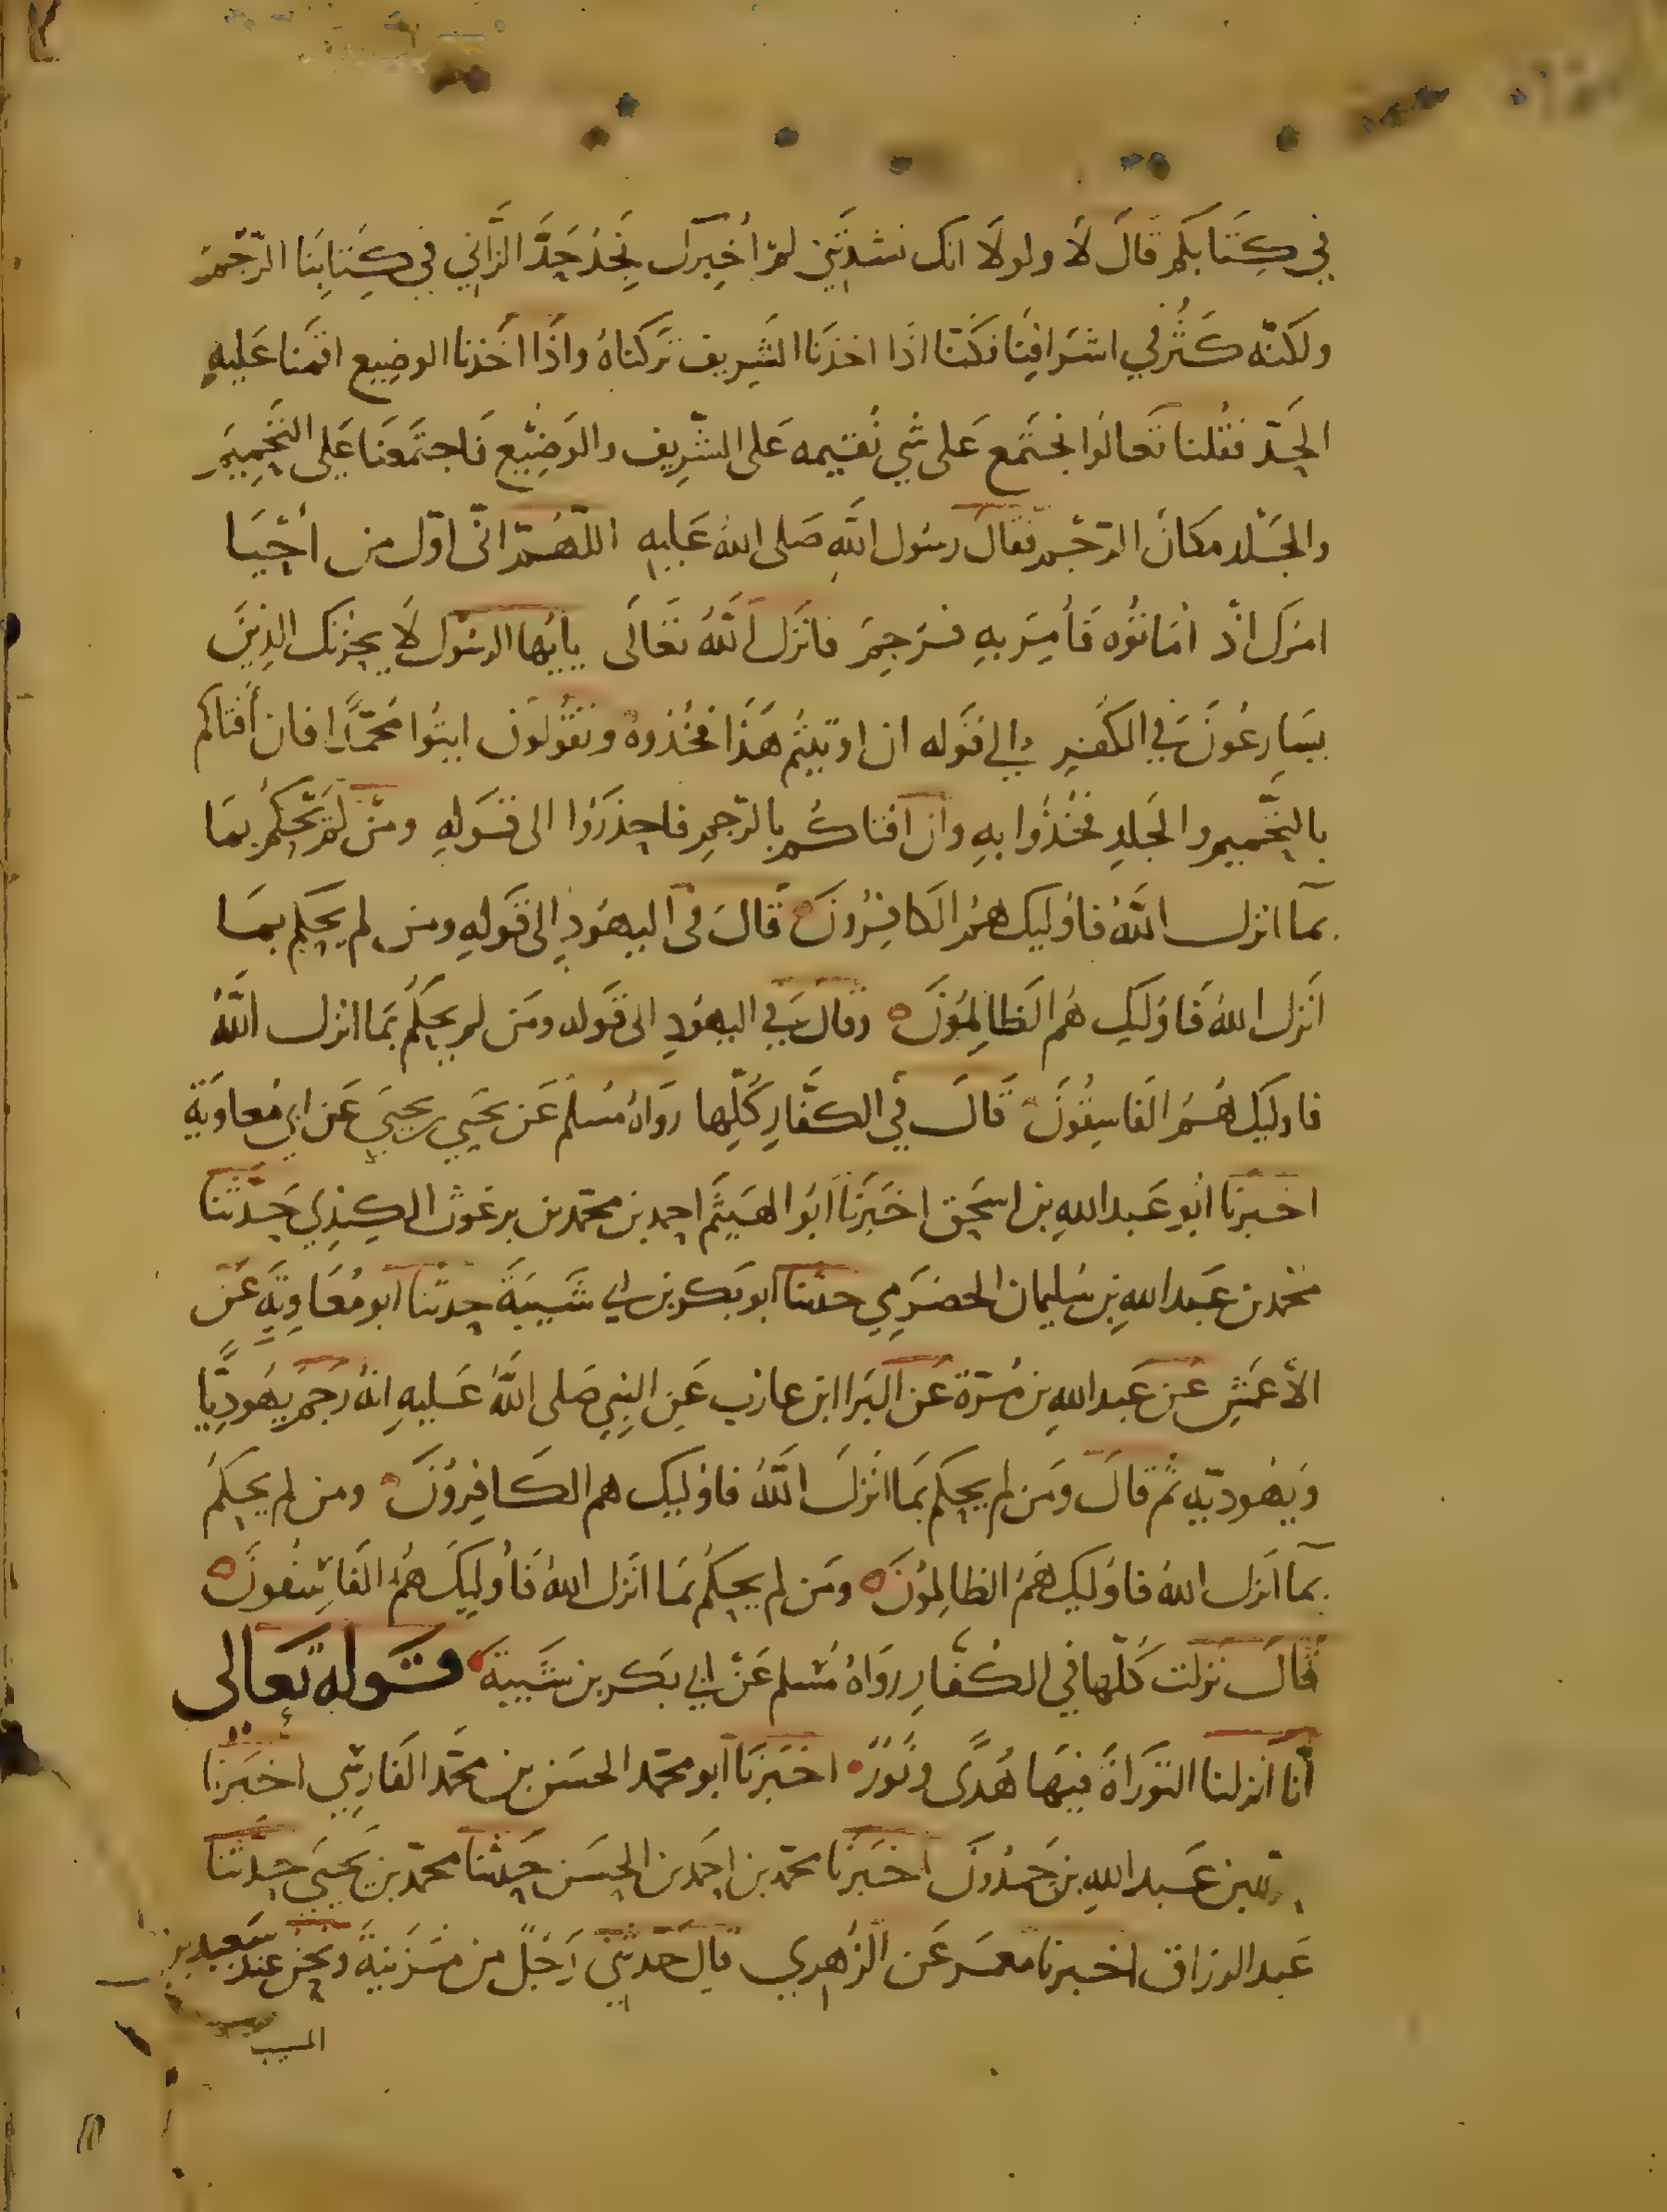 في كتابكم قال لا ولولا انك نشدتني لم أخبرك نجد حد الزاني في كتابنا الرجم
ولكنه كثر في اشرافنا فكنا اذا اخذنا الشريف تركناه واذا اخذنا الوضيع اقمنا عليه
الحد فقلنا تعالوا نجتمع على شي نقيمه على الشريف والوضيع فاجتمعنا على التحميم
والجلد مكان الرجم فقال رسول الله صلى الله عليه اللهم اني اول من أحيا
امرك اذ اماتوه فأمر به فرجم فانزل الله تعالى يايها الرسول لا يحزنك الذين
يسارعون في الكفر الي قوله ان اوتيتم هذا فخذوه وتقولون ايتوا محمدا فان أفتاكم
بالتحميم والجلد فخذوا به وان افتاكم بالرجم فاحذروا الى قوله ومن لم يحكم بما
بما انزل الله فاوليك هم الكافرون قال في اليهود الى قوله ومن لم يحكم بما
انزل الله فاوليك هم الظالمون وقال في اليهود الى قوله ومن لم يحكم بما انزل الله
فاوليك هم الفاسقون قال في الكفار كلها رواه مسلم عن يحيي بن يحيي عن ابي معاوية
اخبرنا ابو عبد الله بن اسحق اخبرنا ابو الهيثم احمد بن محمد بن برغوث الكندي حدثنا
محمد بن عبد الله بن سليمان الحضرمي حدثنا ابو بكر بن ابي شيبة حدثنا ابو معاوية عن
الأعمش عن عبد الله بن مرة عن البرا ابن عازب عن النبي صلى الله عليه انه رجم يهوديا
ويهوديه ثم قال ومن لم يحكم بما انزل الله فاوليك هم الكافرون ومن لم يحكم
بما انزل الله فاوليك هم الظالمون ومن لم يحكم بما انزل الله فأوليك هم الفاسقون
قال نزلت كلها في الكفار رواه مسلم عن ابي بكر بن شيبة قوله تعالى
أنا انزلنا التوراة فيها هدى ونور اخبرنا ابو محمد الحسن بن محمد الفارسي اخبرنا
بن عبد الله بن حمدون اخبرنا محمد بن احمد بن الحسن حدثنا محمد بن يحيي حدثنا
عبد الرزاق اخبرنا معمر عن الزهري قال حدثني رجل من مزينة ونحن عند سعيد بن
المسيب